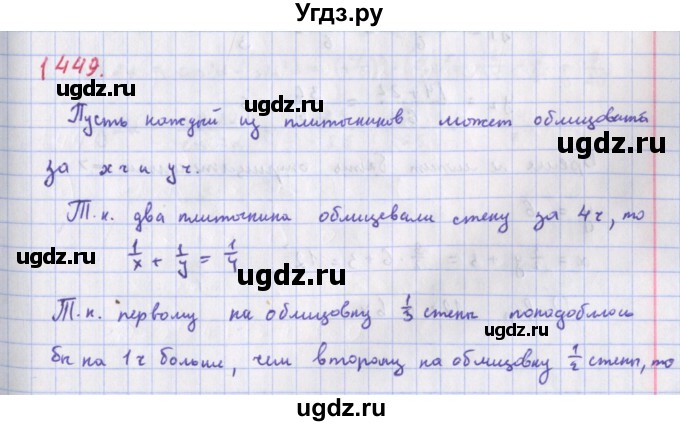 Угдз.ру
1449.
Пусть каждый из плиточников может облицовать
за x ч и y ч.
Т.к. два плиточника облицевали стену за 4ч, то
1/x + 1/y = 1/4
Т.к. первому на облицовку 1/3 стены понадоблось
бы на 1ч больше, чем второму на облицовку 1/2 стены, то
ugdz.ru
ugdz.ru
ugdz.ru
ugdz.ru
ugdz.ru
ugdz.ru
ugdz.ru